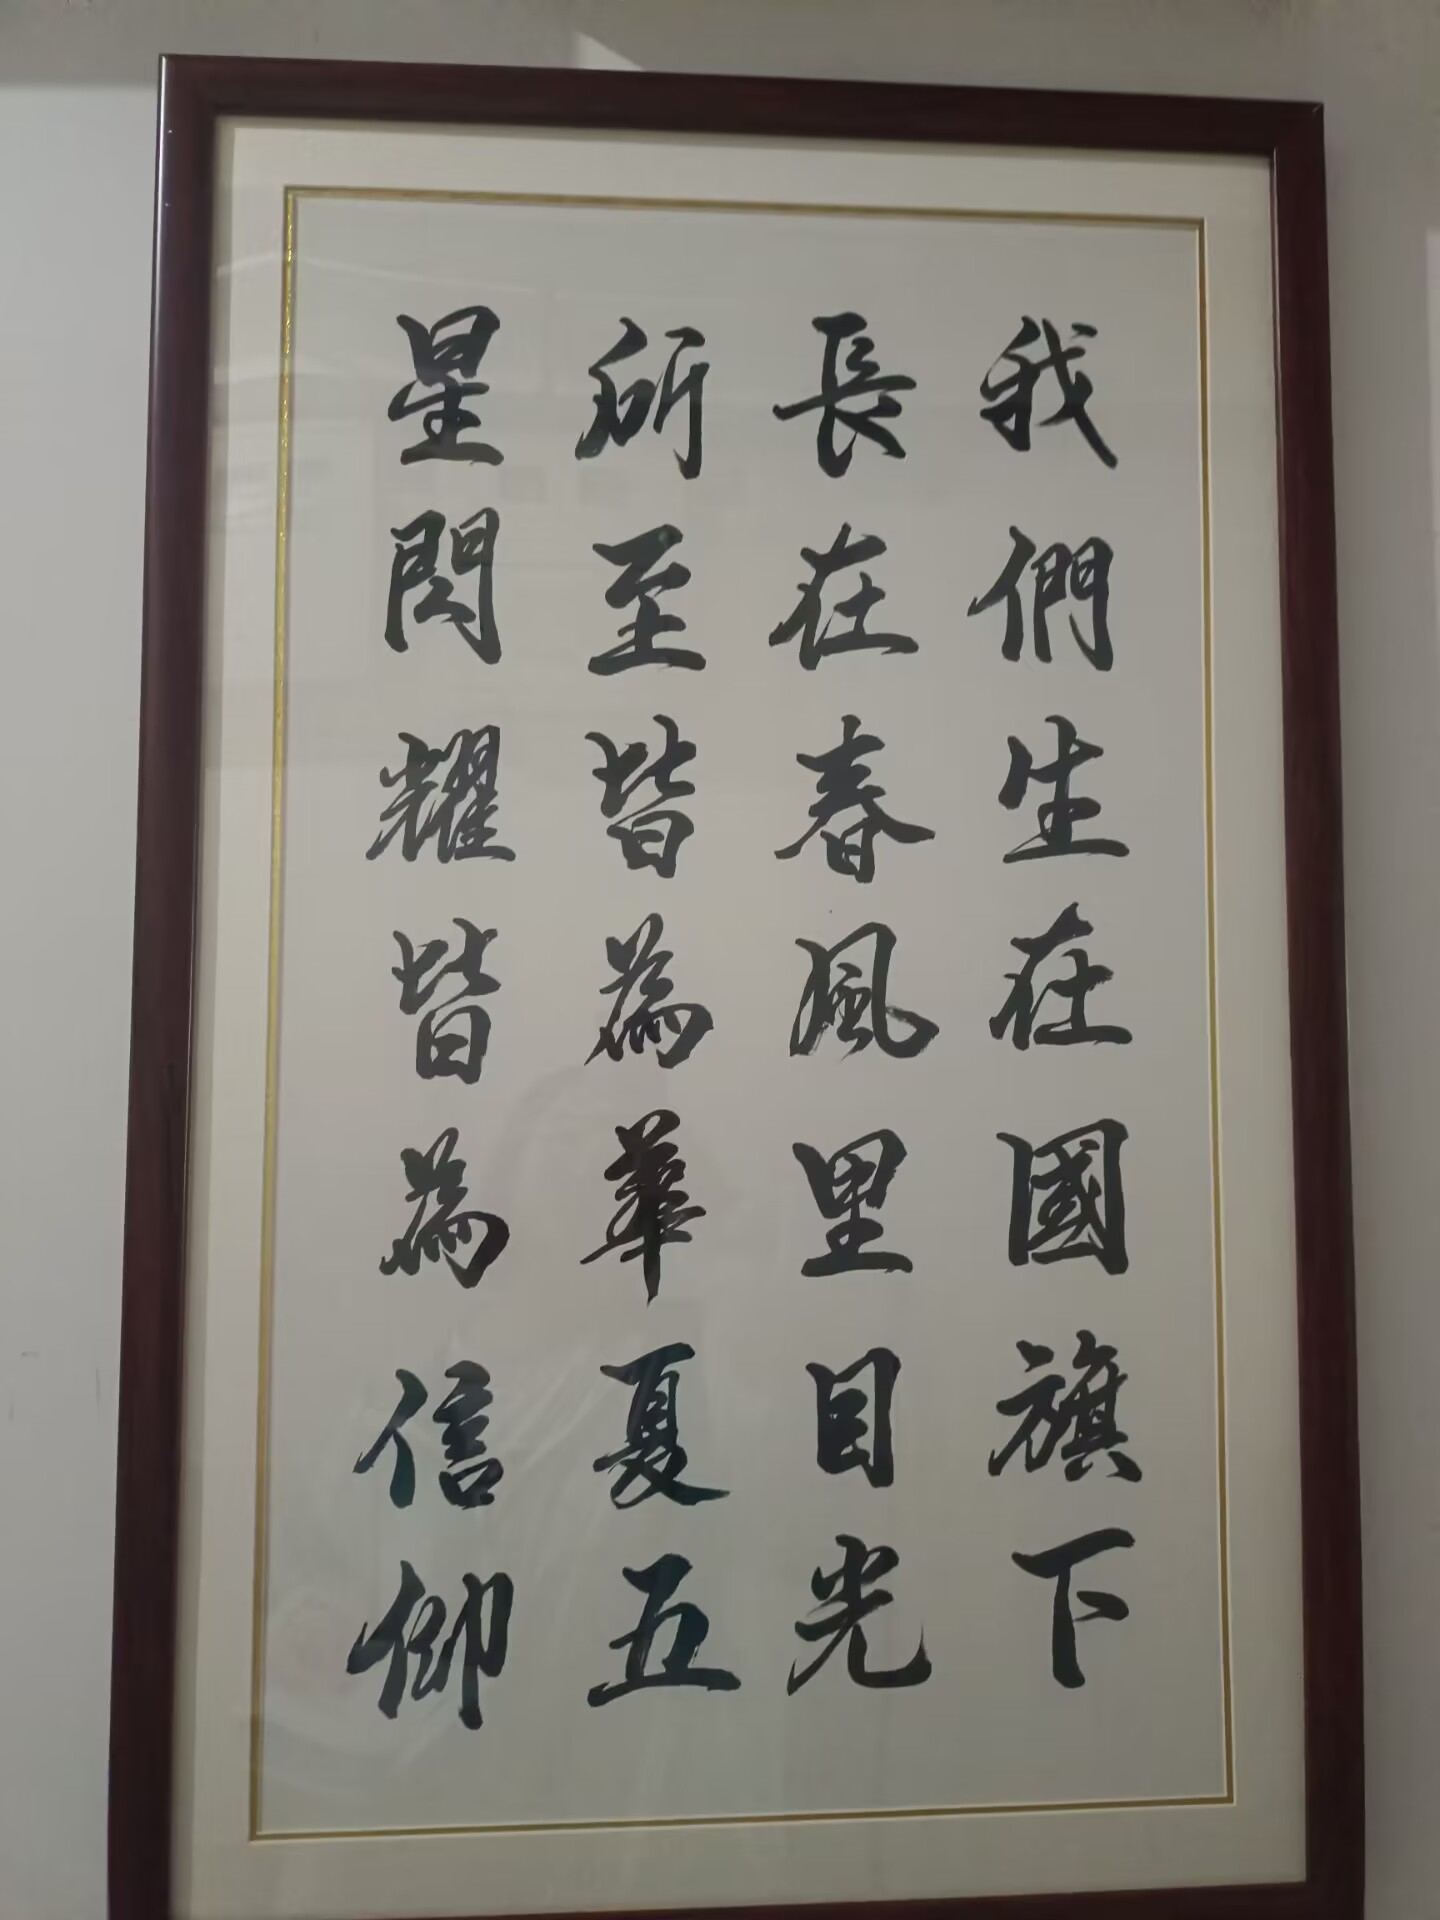 我們生在國旗下
長在春風里目光
所至皆為華夏五
星閃耀皆為信仰